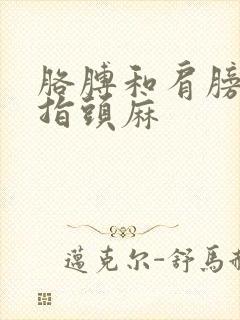 胳膊和肩膀
指頭麻
邁克尔-舒馬赫